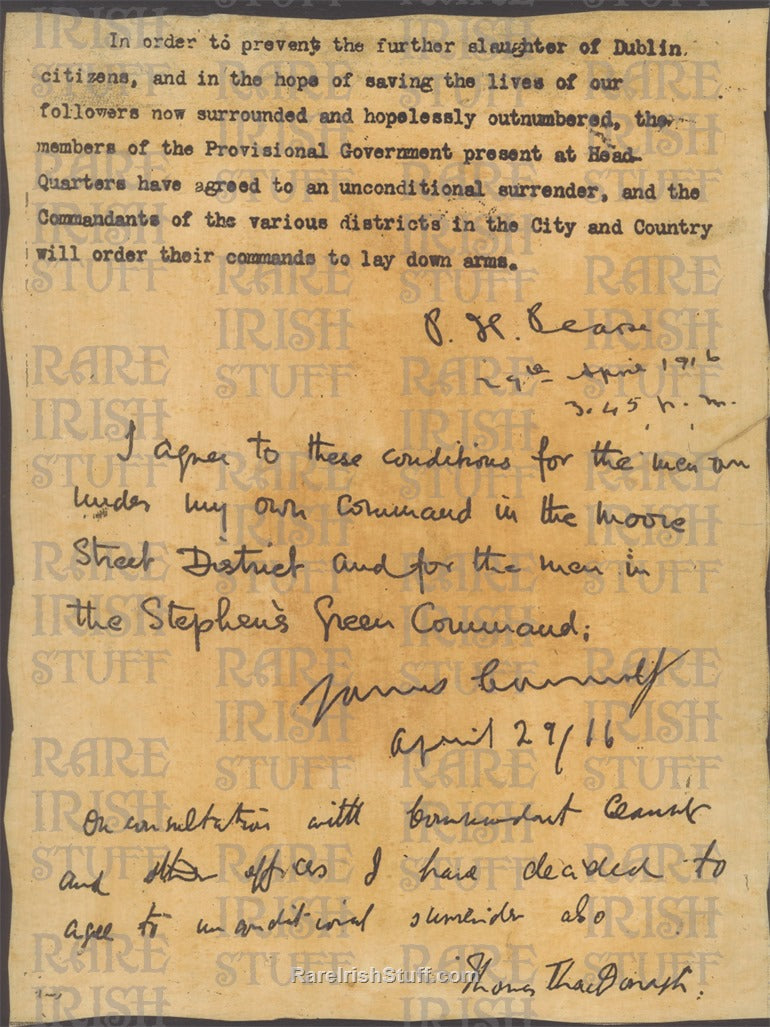 In order to prevent the further slaughter of Dublin
citizens, and in the hope of saving the lives of our
followers now surrounded and hopelessly outnumbered, the
members of the Provisional Government present at Head-
Quarters have agreed to an unconditional surrender, and the
Commandants of the various districts in the City and Country
will order their commands to lay down arms.
P. H. Pearse
29th April 1916
3.45 p.m.
I agree to these conditions for the men
under my own Command in the Moore
Street District and for the men in
the Stephen's Green Command;
James Connolly
April 29/16
On consultation with Commandant Ceannt
and other officers I have decided to
agree to unconditional surrender also
Thomas MacDonagh.
RareIrishStuff.com
RARE IRISH STUFF